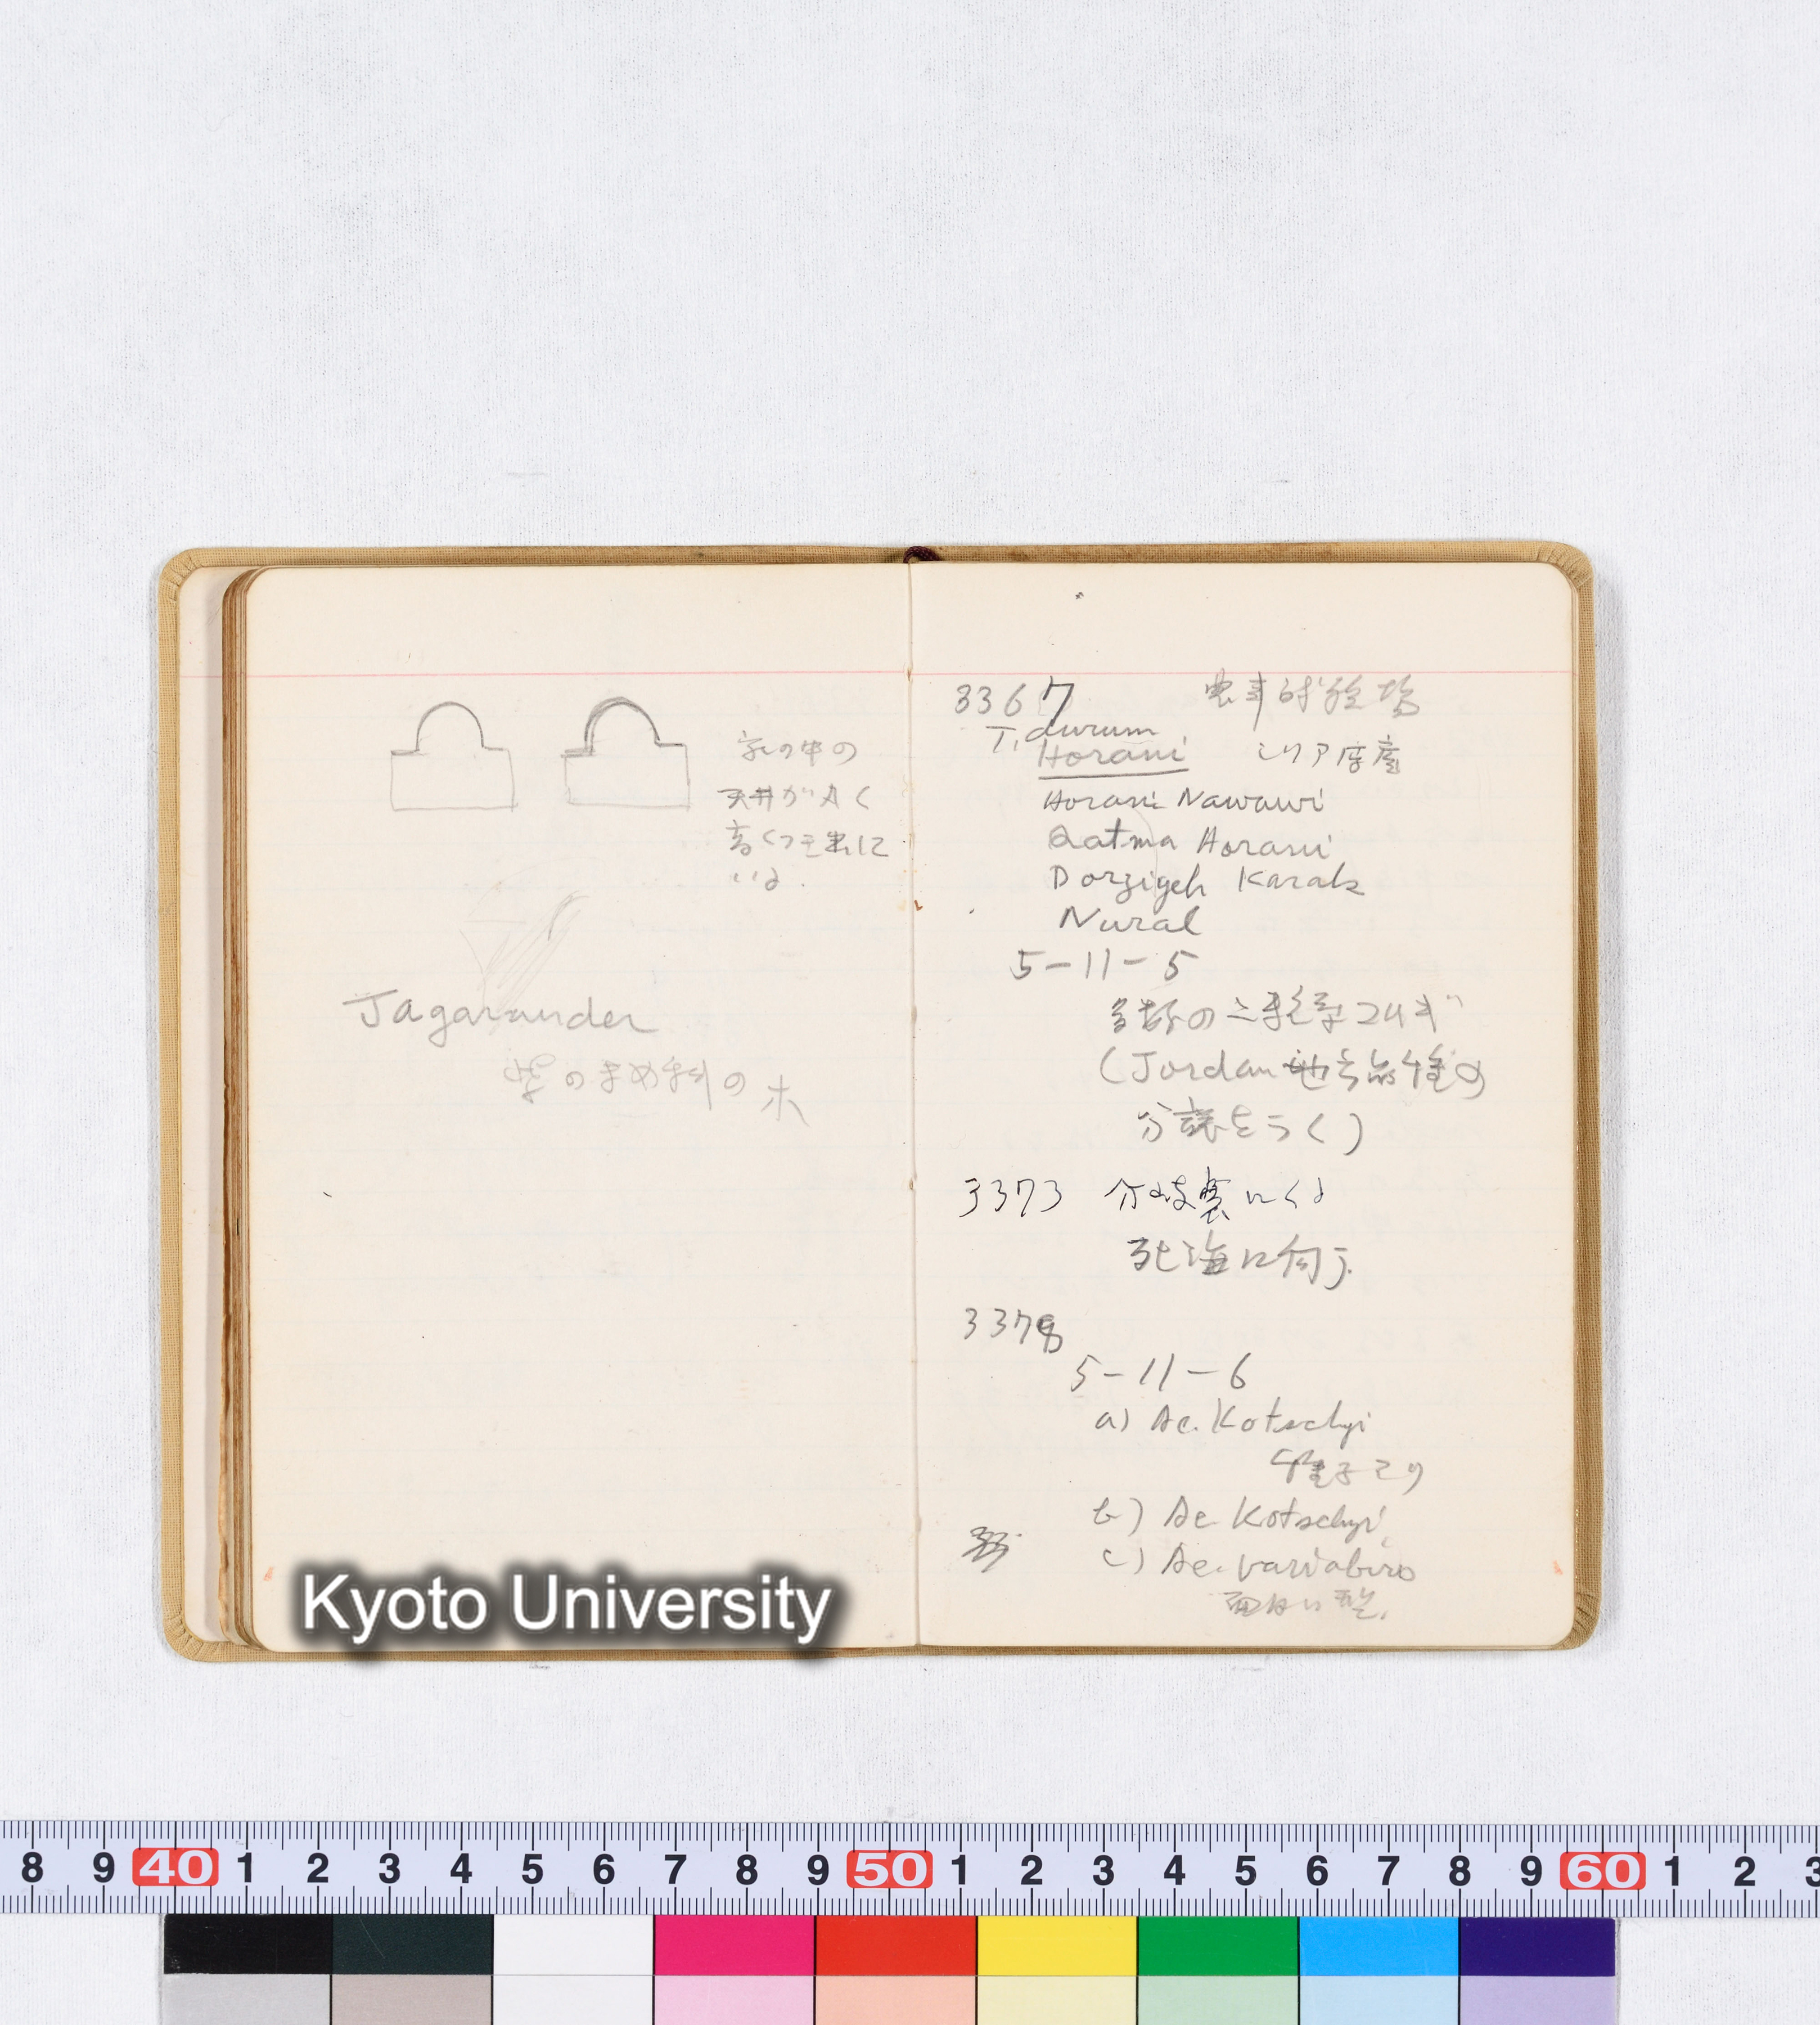 家の中の
天井が丸く
高くつき出て
いる.
Jagarander
紫のまめ科の木
3367 農事試験場
T. durum
Horani シリア原産
Horani Nawawi
Qatma Horani
Dorzigeh Karak
Nural
5-11-5
多数の二条コムギ
(Jordan 地方品種の
分譲をうく)
3373 分岐点にくる
死海に向う.
3378
5-11-6
a) Ae. Kotschyi
種子とり
b) Ae Kotschyi
c) Ae. variabiro
面白い型.
Kyoto University
8 9 40 1 2 3 4 5 6 7 8 9 50 1 2 3 4 5 6 7 8 9 60 1 2 3